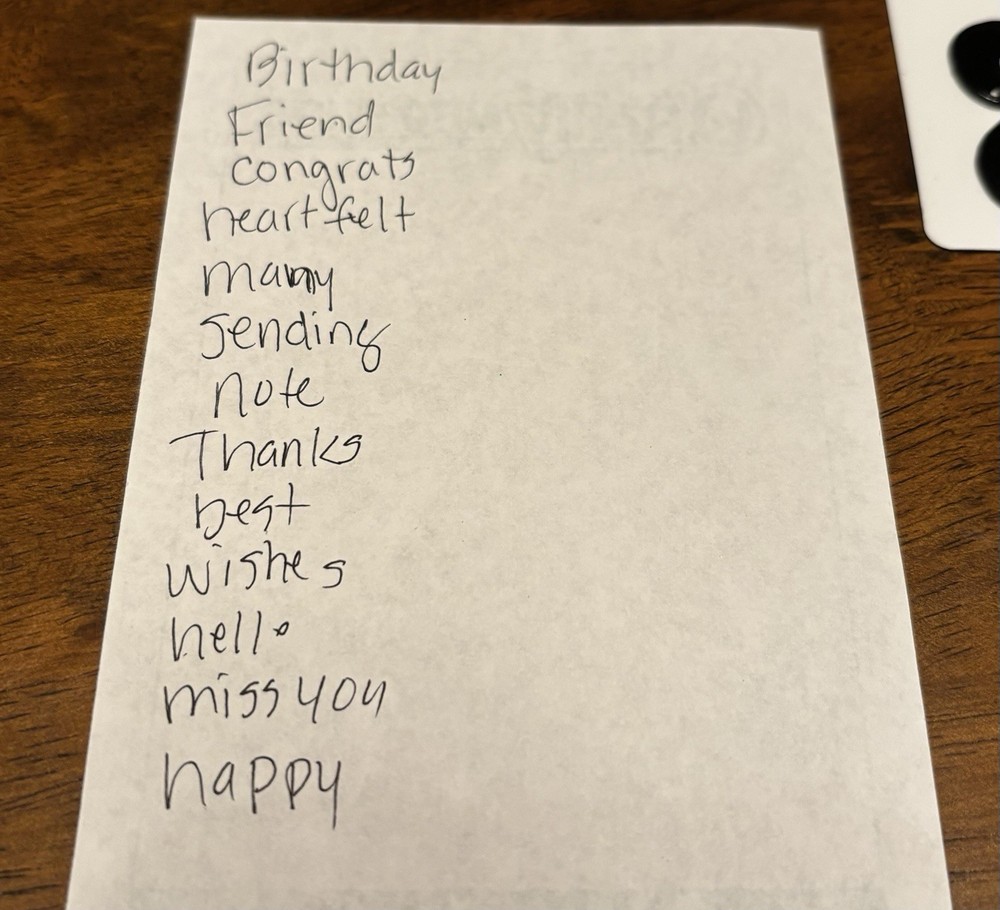 Birthday
Friend
congrats
heartfelt
many
sending
note
Thanks
best
wishes
hello
miss you
happy